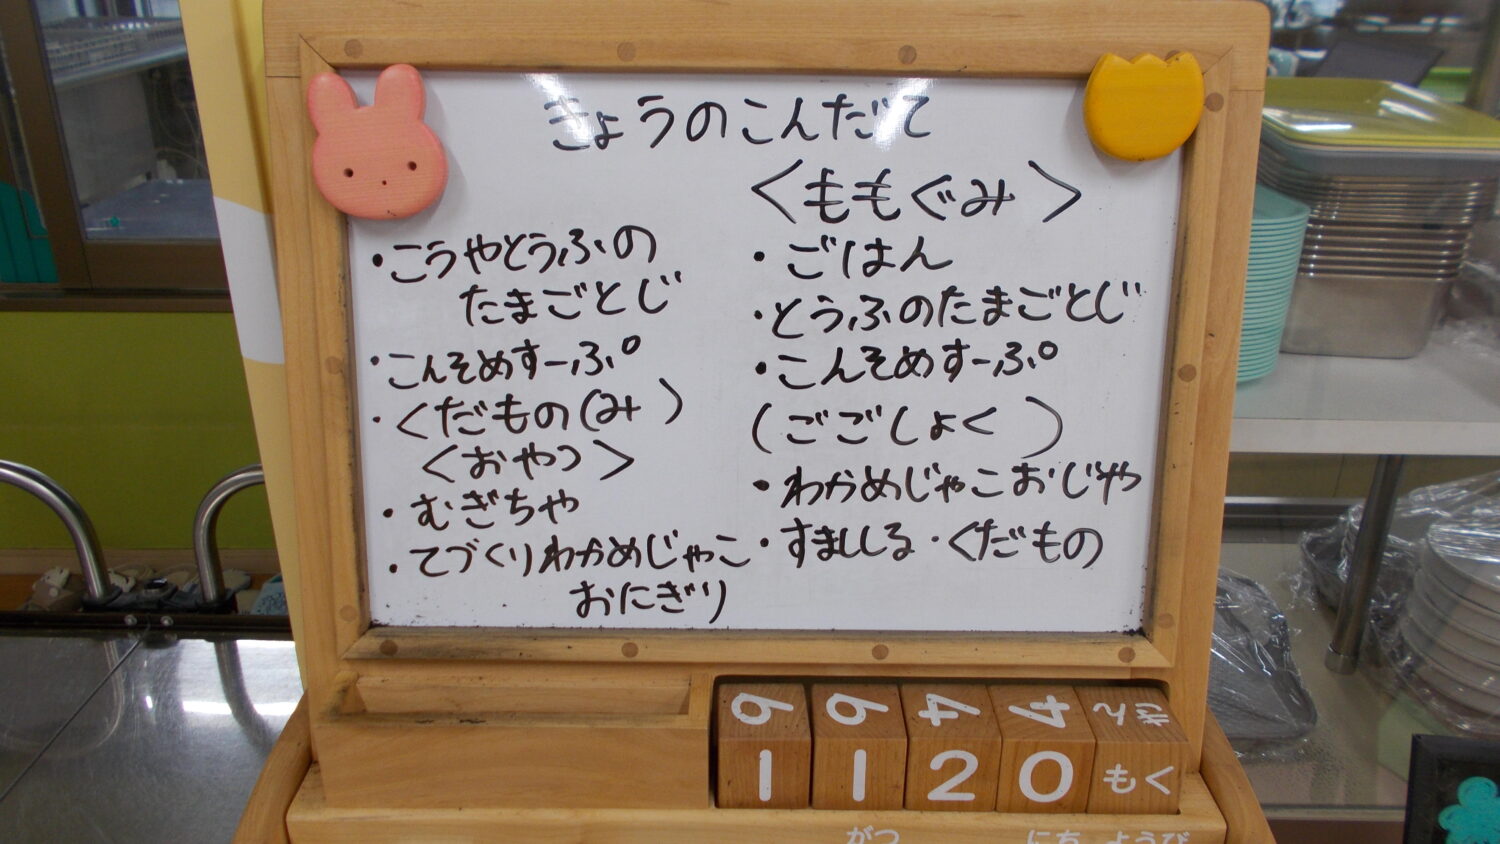 きょうのこんだて
・こうやとうふの
たまごとじ
・こんそめすーぷ
・くだもの(み)
<おやつ>
・むぎちゃ
・てづくりわかめじゃこ
おにぎり
<ももぐみ>
・ごはん
・とうふのたまごとじ
・こんそめすーぷ
(ごごしょく)
・わかめじゃこおじや
・すましじる・くだもの
6 6 4 4
1 1 2 0 もく
がつ にち ようび